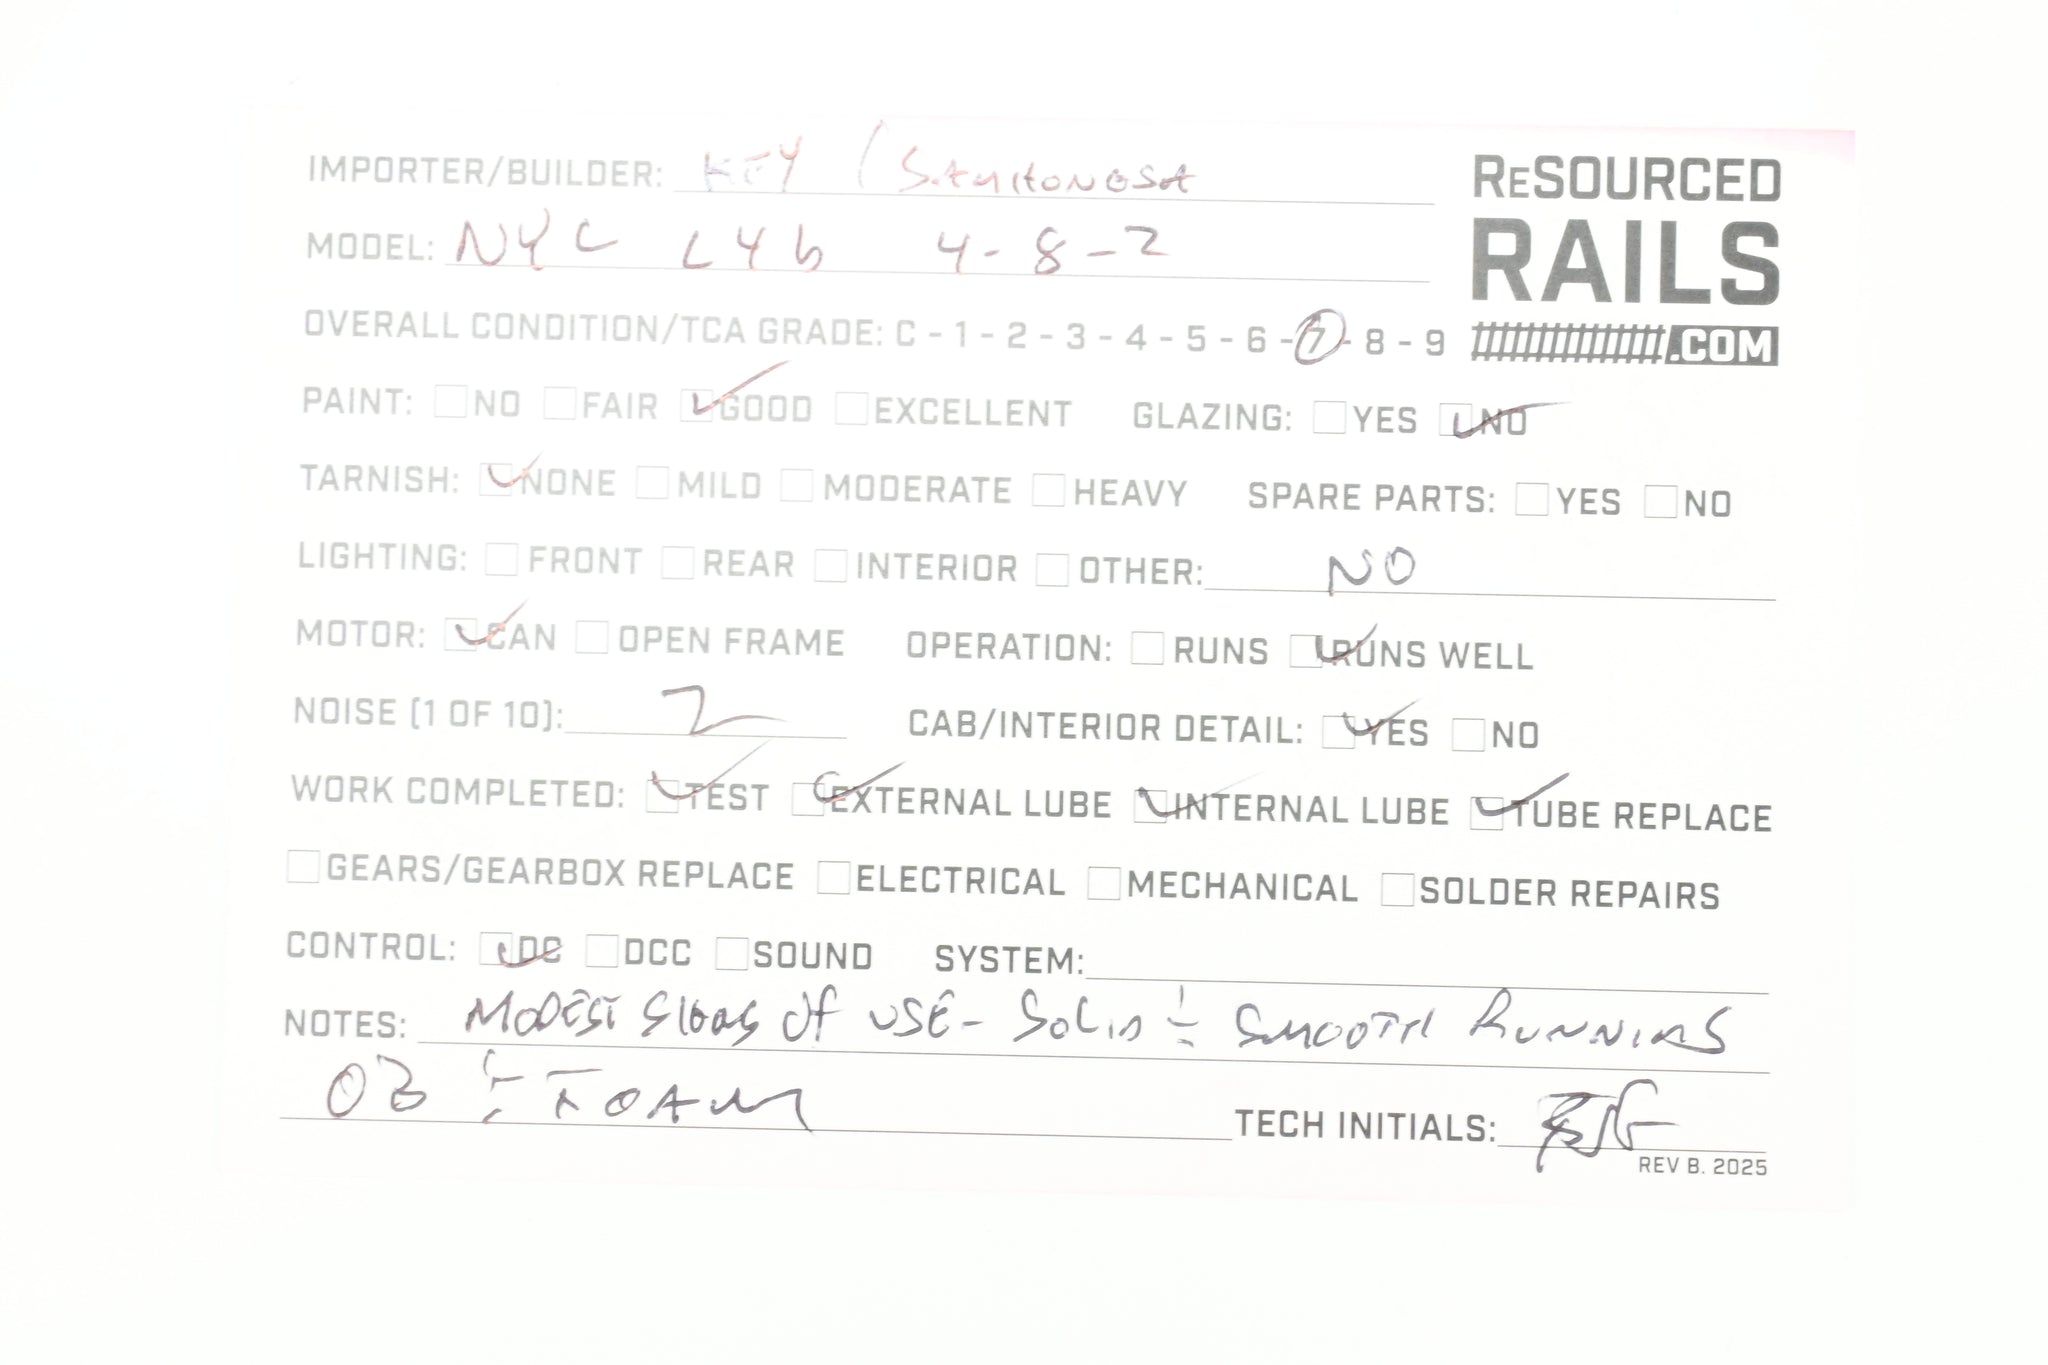 IMPORTER/BUILDER: KEY / SAMHONGSA
ReSOURCED
RAILS
.COM
MODEL: NYC L4b 4-8-2
OVERALL CONDITION/TCA GRADE: C - 1 - 2 - 3 - 4 - 5 - 6 - 7 - 8 - 9
PAINT: NO FAIR GOOD EXCELLENT GLAZING: YES NO
TARNISH: NONE MILD MODERATE HEAVY SPARE PARTS: YES NO
LIGHTING: FRONT REAR INTERIOR OTHER: NO
MOTOR: CAN OPEN FRAME OPERATION: RUNS RUNS WELL
NOISE (1 OF 10): 2 CAB/INTERIOR DETAIL: YES NO
WORK COMPLETED: TEST EXTERNAL LUBE INTERNAL LUBE TUBE REPLACE
GEARS/GEARBOX REPLACE ELECTRICAL MECHANICAL SOLDER REPAIRS
CONTROL: DC DCC SOUND SYSTEM:
NOTES: MODEST SIGNS OF USE - SOLID & SMOOTH RUNNING
OB & FOAM
TECH INITIALS:
REV B. 2025